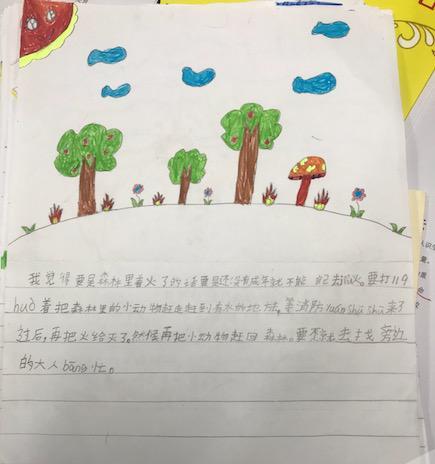 我觉得要是森林里着火了的话要是还没有成年就不能自己去救火。要打119
huò着把森林里的小动物赶走赶到有水的地方，等消防yuán shū shu来了
过后，再把火给灭了。然候再把小动物赶回森林。要就去找旁边
的大人bāng忙。